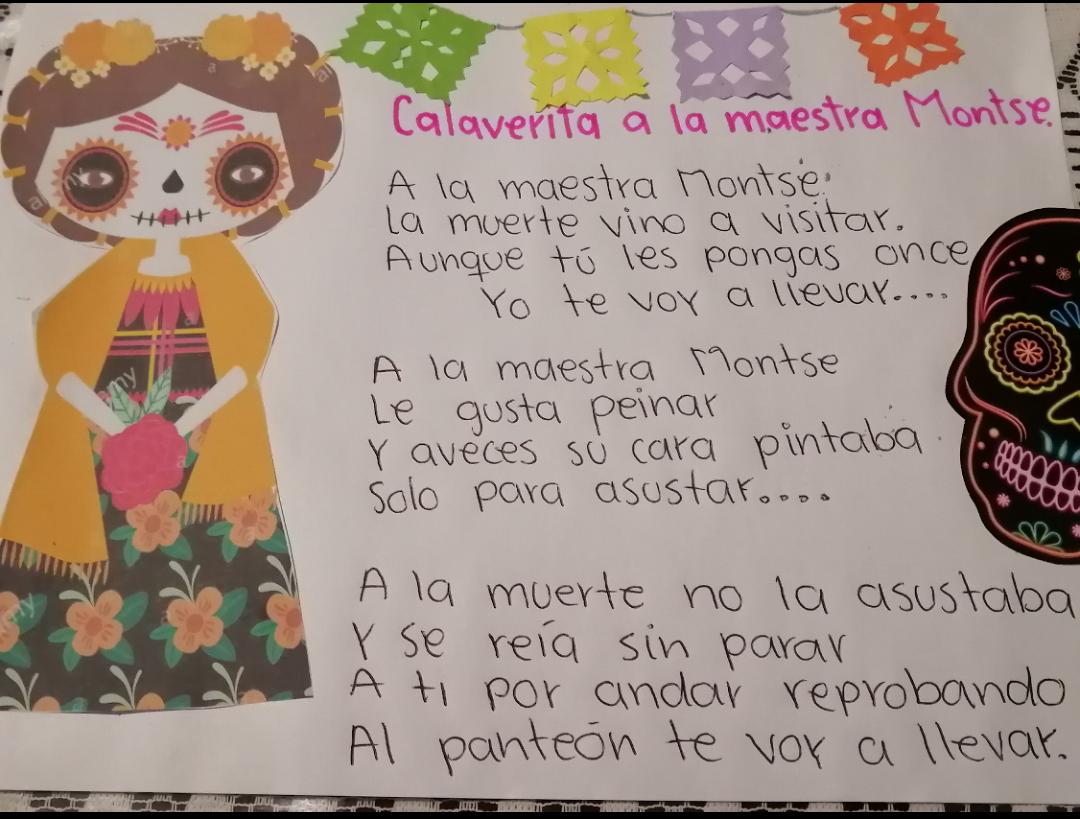 Calaverita a la maestra Montse.
A la maestra Montse
La muerte vino a visitar.
Aunque tú les pongas once
Yo te voy a llevar....
A la maestra Montse
Le gusta peinar
Y aveces su cara pintaba
Solo para asustar....
A la muerte no la asustaba
Y se reía sin parar
A ti por andar reprobando
Al panteón te voy a llevar.